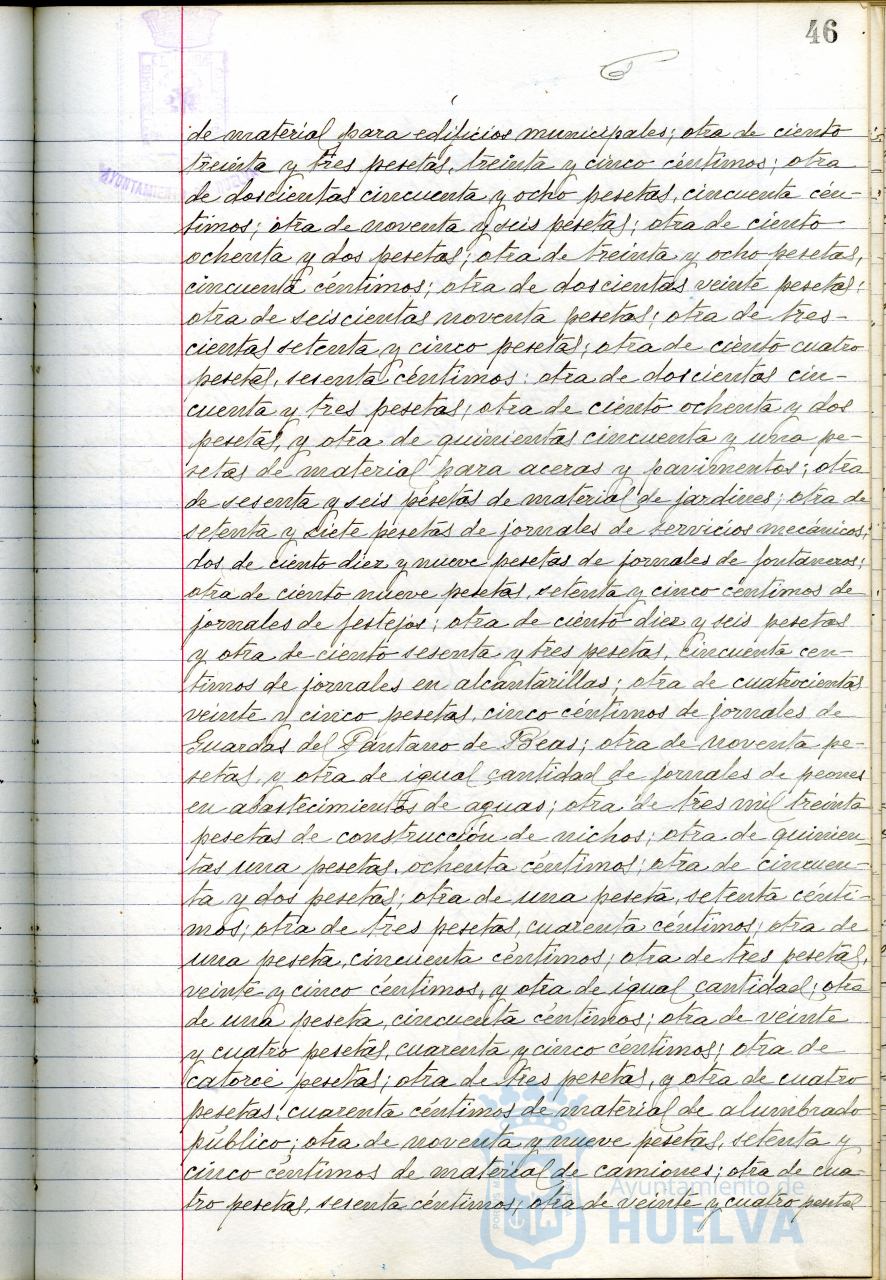 46
de material para edificios municipales; otra de ciento
treinta y tres pesetas, treinta y cinco céntimos; otra
de doscientas cincuenta y ocho pesetas, cincuenta cén-
timos; otra de noventa y seis pesetas; otra de ciento
ochenta y dos pesetas; otra de treinta y ocho pesetas,
cincuenta céntimos; otra de doscientas veinte pesetas;
otra de seiscientas noventa pesetas; otra de tres-
cientas setenta y cinco pesetas; otra de ciento cuatro
pesetas, sesenta céntimos; otra de doscientas cin-
cuenta y tres pesetas; otra de ciento ochenta y dos
pesetas, y otra de quinientas cincuenta y una pe-
setas de material para aceras y pavimentos; otra
de sesenta y seis pesetas de material de jardines; otra de
setenta y siete pesetas de jornales de servicios mecánicos;
dos de ciento diez y nueve pesetas de jornales de fontaneros;
otra de ciento nueve pesetas, setenta y cinco céntimos de
jornales de festejos; otra de ciento diez y seis pesetas
y otra de ciento sesenta y tres pesetas, cincuenta cen-
timos de jornales en alcantarillas; otra de cuatrocientas
veinte y cinco pesetas, cinco céntimos de jornales de
Guardas del Pantano de Beas; otra de noventa pe-
setas, y otra de igual cantidad de jornales de peones
en abastecimientos de aguas; otra de tres mil treinta
pesetas de construcción de nichos; otra de quinien-
tas una pesetas, ochenta céntimos; otra de cincuen-
ta y dos pesetas; otra de una peseta, setenta cénti-
mos; otra de tres pesetas, cuarenta céntimos; otra de
una peseta, cincuenta céntimos; otra de tres pesetas,
veinte y cinco céntimos, y otra de igual cantidad; otra
de una peseta, cincuenta céntimos; otra de veinte
y cuatro pesetas, cuarenta y cinco céntimos; otra de
catorce pesetas; otra de tres pesetas, y otra de cuatro
pesetas, cuarenta céntimos de material de alumbrado
público; otra de noventa y nueve pesetas, setenta y
cinco céntimos de material de camiones; otra de cua-
tro pesetas, sesenta céntimos; otra de veinte y cuatro pesetas
Ayuntamiento de
HUELVA